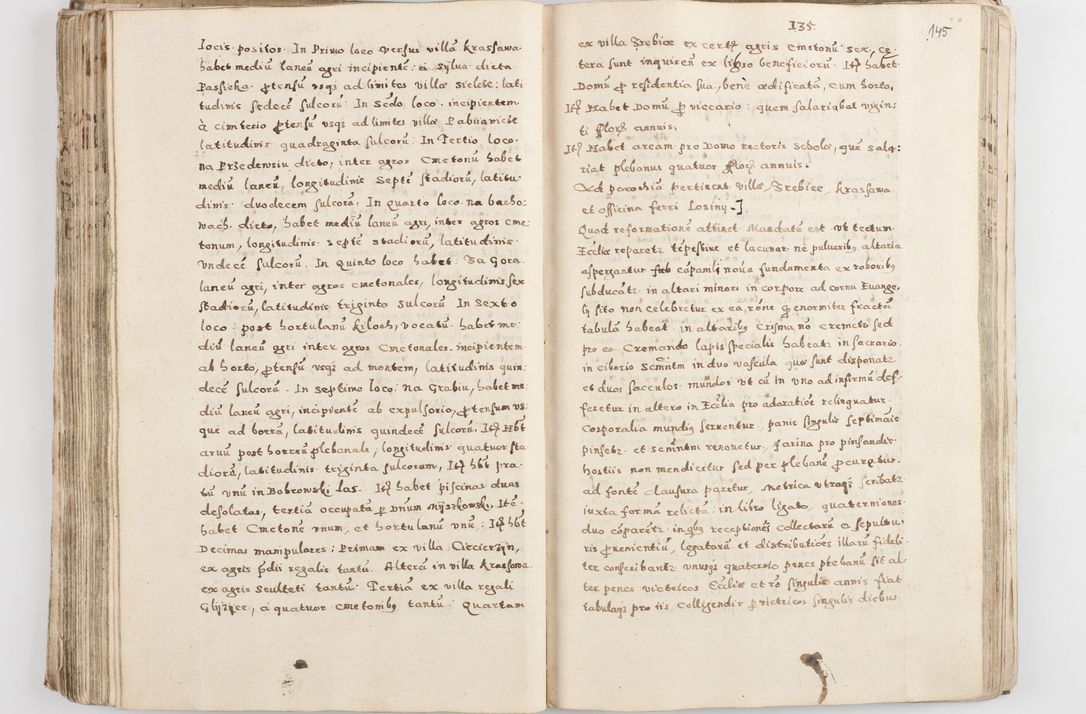 locis positos. In Primo loco versus villã krassawa
habet mediũ laneũ agri incipientẽ: à sylua dicta
Passieka ꝓtensũ vsqꝫ ad limites villæ sielcse: lati
tudinis sedecẽ sulcorũ: In sedo loco incipientem
à cimiterio ꝓtensũ vsqꝫ ad limites villæ Pabiianicze
latitudinis quadraginta sulcorũ: In Tertio loco
na Przedewsiu dicto, inter agros Cmetonũ habet
mediũ laneũ, longitudinis septẽ stadiorũ, latitu-
dinis duodecem sulcorũ. In quarto loco na bacho-
wach dicto, habet mediũ laneũ agri, inter agros Cme-
tonum, longitudinis septẽ stadiorũ, latitudinis
vndecẽ sulcorũ. In quinto loco habet Za Gora
laneũ agri, inter agros Cmetonales, longitudinis sex
stadiorũ, latitudinis triginta sulcorũ In sexto
loco: post hortulanũ kiloch, vocatũ habet me-
diũ laneũ agri inter agros Cmetonales incipientem
ab horto, ꝓtensũ vsqꝫ ad montem, latitudinis quin
decẽ sulcorũ. In septimo loco: na Grabiu, habet me
diũ laneũ agri, incipientẽ ab expulsorio, ꝓtensum vs-
que ad borrã, latitudinis quindecẽ sulcorũ. Itꝫ Hbt
aruũ post horreũ plebanale, longitudinis quatuor sta
diorũ, latitudinis triginta sulcorum, Itꝫ hbt pra-
tũ vnũ in Bobrowski las. Itꝫ habet piscinas duas
desolatas, tertiã occupatã ꝑ Dnum Mijszkowski, Itẽ
habet Cmetonẽ vnum, et hortulanũ vnũ: Itꝫ hbt
Decimas manipulares: Primam ex villa
ex agris pdii regalis tantũ. Alterã in villa Krassowa
ex agris sculteti tantũ: Tertiã ex villa regali
à quatuor cmetonibꝫ tantũ: Quartam
135 145
ex villa Trebice ex certꝫ agris Cmetonũ sex, ce-
tera sunt inquirenda ex libro beneficiorũ. Itꝫ habet
Domũ ꝓ residentia sua, benè ædificatã, cum horto,
Itꝫ Habet Domũ ꝓ viccario: quem salariabat vigin-
ti florꝫ annuis.
Itꝫ Habet aream pro Domo rectoris scholæ, quẽ sala-
riat plebanus quatuor florꝫ annuis.
Ad parochiã pertinent villæ, Trebice, krassawa
et officina ferri Losiny.
Quod reformationẽ attinet Mandatũ est vt tectum
Ecclĩæ reparetꝫ tẽpestiue et lacunar ne pulueribꝫ altaria
aspergantur cõpamli nova fundamenta ex roboribꝫ
subducãtꝫ in altari minori in corpore ad cornu Euange-
lij sito non celebretur ex ea rõne q enormiter fractã
tabulã habeat in altaribꝫ Crisma nõ cremetur sed
pro eo Cremando lapis specialis habeatꝫ in sacrario
in ciborio Scmntm in duo vascula quæ sunt disponatꝫ
et duos sacculos mundos vt cũ In vno ad infirmũ def-
feretur in altero in Ecclĩa pro adoratiõe relinquatur
Corporalia mundiꝫ seruentur, panis singulis septimaie
pinsetꝫ et scmntm renouetur, farina pro pinsandis
hostiis non mendicetur sed per plebanũ ꝓcuretur
ad fontẽ clausura paretur, metrica vtraqꝫ scribatꝫ
iuxta formã relictã in libro ligato, quaterniones
duo cõparẽtꝫ in qbꝫ receptiones collectarũ a sepultu-
ris ꝓuenientiũ, legatorũ et distributiões illarũ fideli-
ter conscribantꝫ vnusqꝫ quaternio penes plebanũ sit al-
ter penes vietricos Ecclĩæ et rõ singulis annis fiat
tabulaqꝫ pro iis colligendis ꝑ vietricos singulis diebus